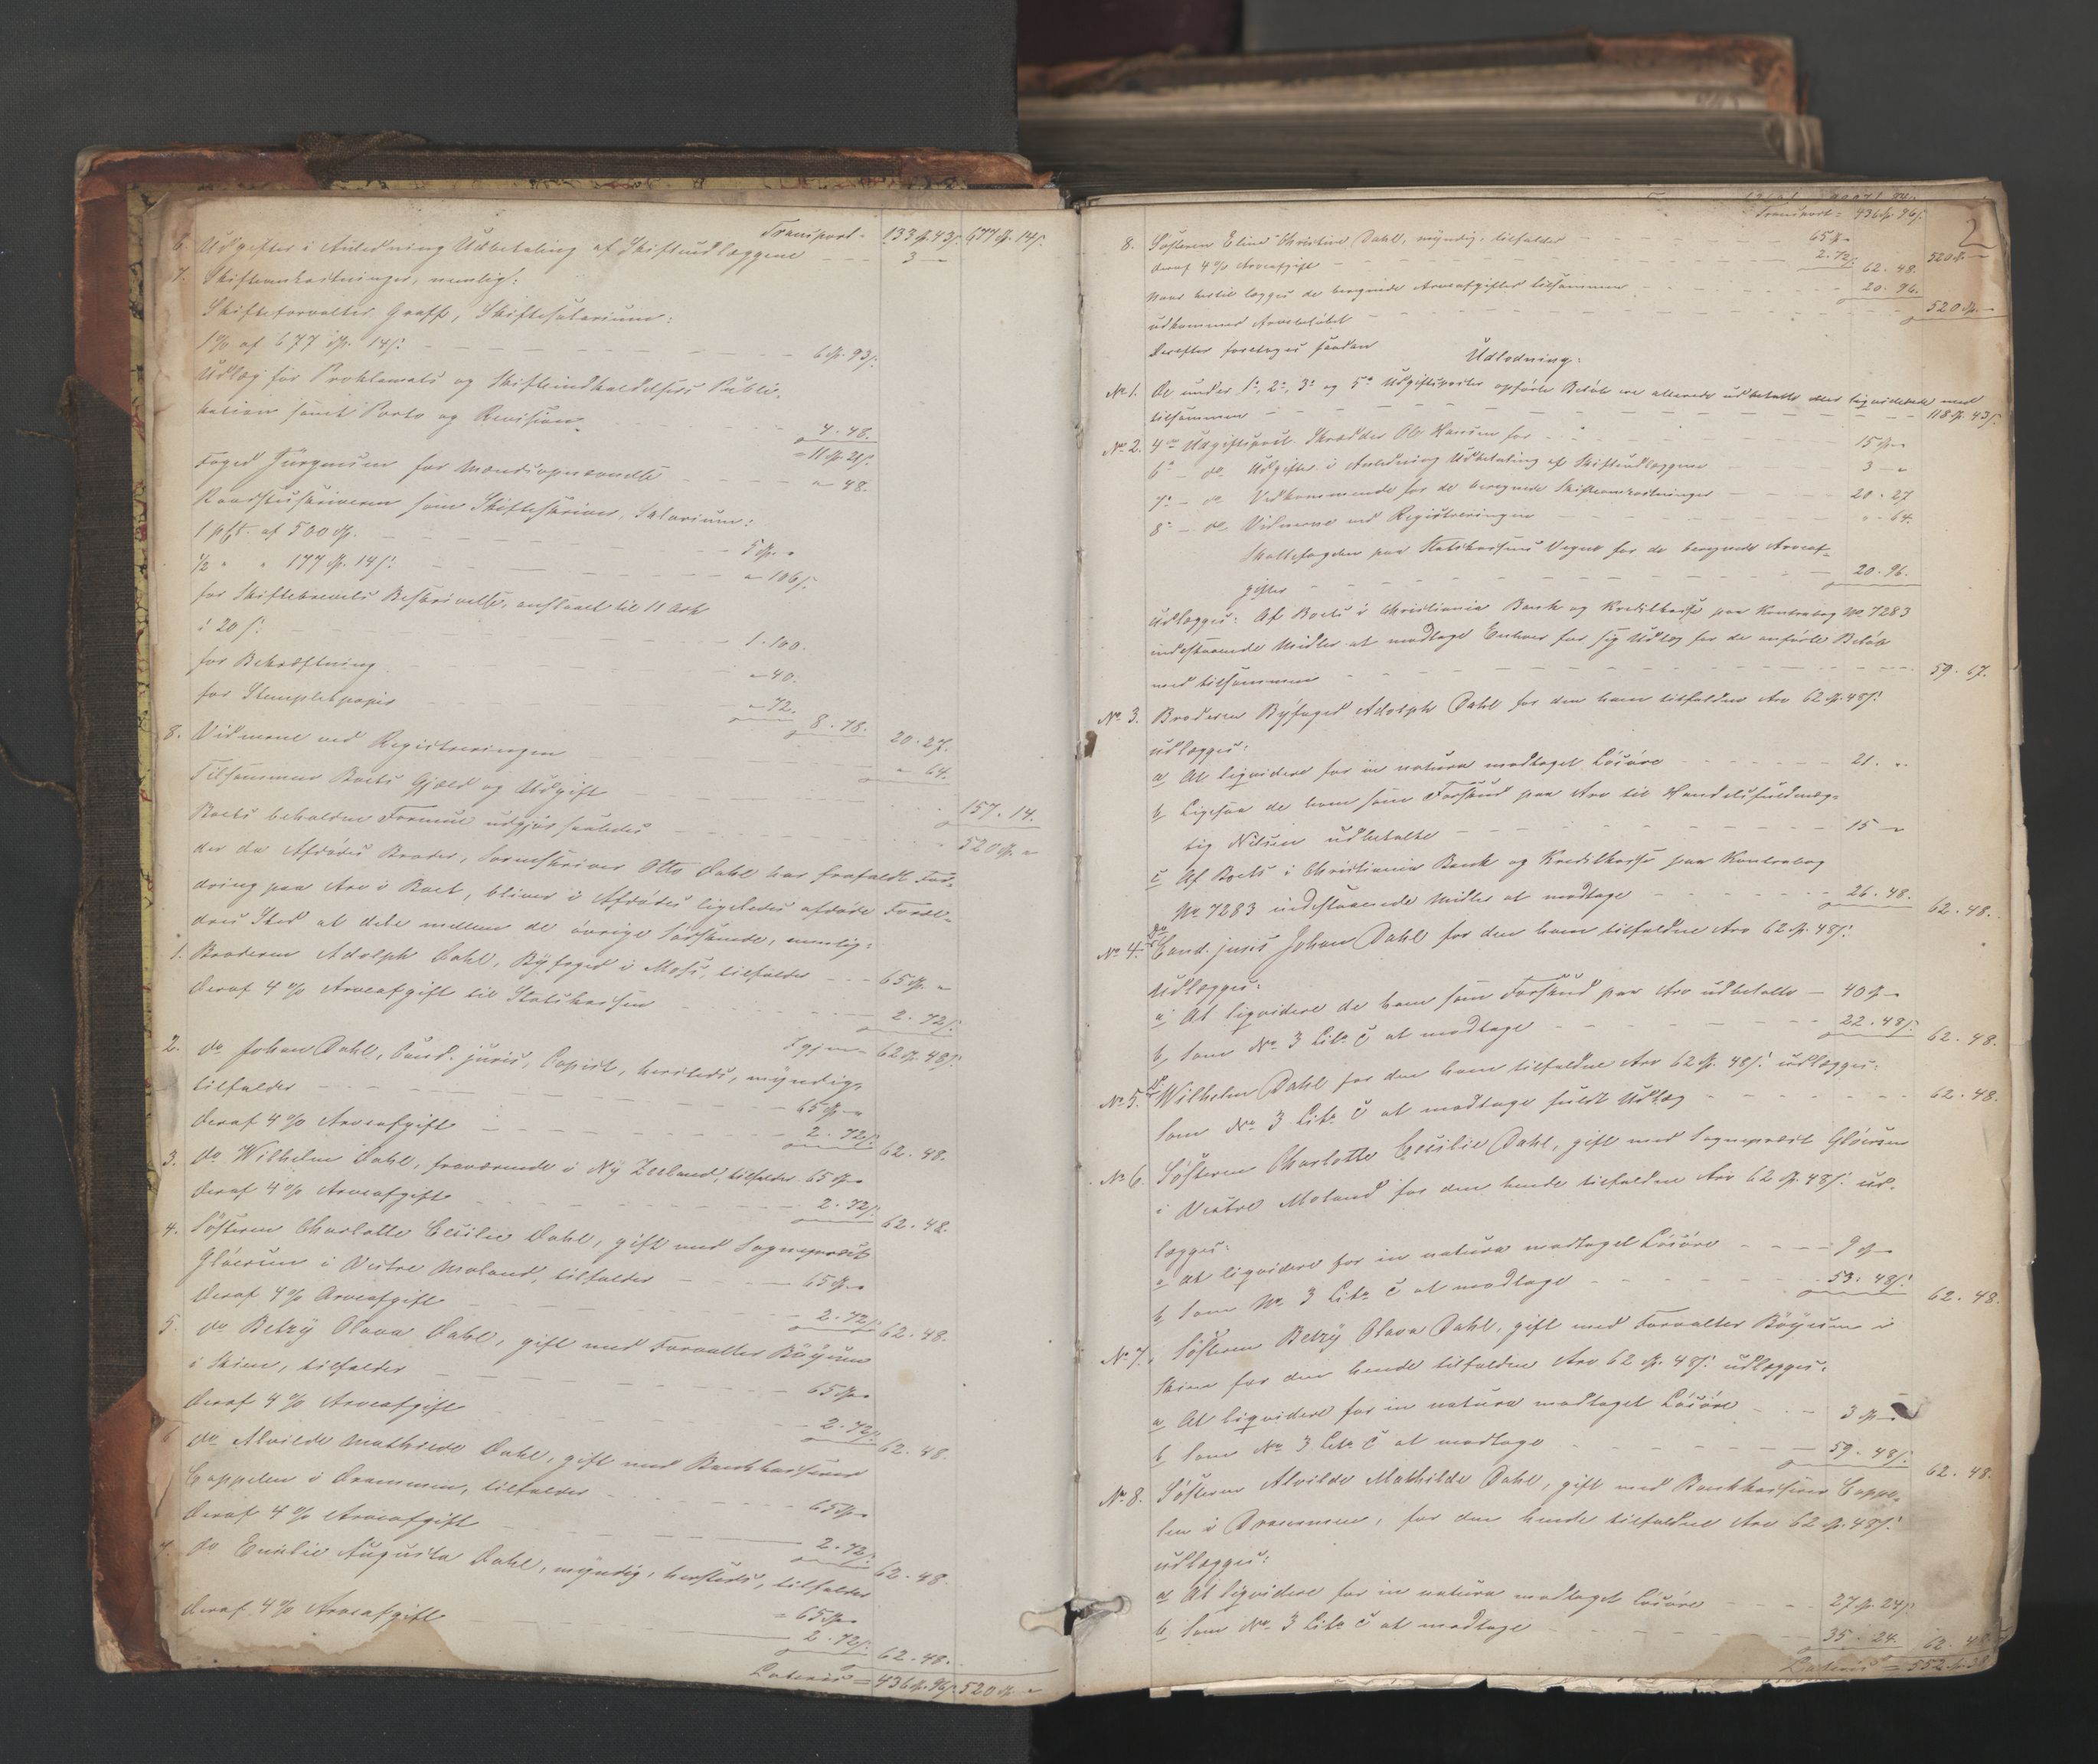 Transport = 133 Sp. 43 s. 677 Sp. 14 s.
6. Udgifter i Anledning Udbetaling af Skifteudlæggene - - - 3 -
7. Skifteomkostninger, nemlig:
Skifteforvalter Graff, Skiftesalarium:
1% af 677 Sp. 14 s: - - - 6 Sp. 93 s:
Udlæg for Proklamats og Skifteindkaldelsers Publi-
kation samt Porto og Revision - - - 4. 48.
= 11 Sp. 21 s.
Foged Jürgensen for Mændsopnævnelse - - - " 48.
Raadstueskriveren som Skifteskriver, Salarium:
1 pCt. af 500 Sp. - - - 5 Sp. "
½ " " 177 Sp. 14 s: - - - " 106 s.
for Skiftebrevets Beskrivelse, anslaaet til 11 Ark
à 20 s: - - - 1. 100.
for Bekræftning - - - " 40.
for Stemplet papir - - - " 72.
8. 78. 20. 27.
8. Vidnerne ved Registreringen - - - " 64.
Tilsammen Boets Gjæld og Udgift - - - 157. 14.
Boets beholdne Formue udgjør saaledes - - - 520 Sp. "
der da Afdødes Broder, Sorenskriver Otto Dahl har frafaldt For-
dring paa Arv i Boet, bliver i Afdødes ligeledes afdøde Foræl-
dres Sted at dele mellem de øvrige Søskende, nemlig:
1. Broderen Adolph Dahl, Byfoged i Moss, tilfalder - - - 65 Sp. "
deraf 4% Arveafgift til Statskassen - - - 2. 72 s:
Igjen = 62 Sp. 48 s:
2. do Johan Dahl, Cand. juris, Copist, hersteds, myndig,
tilfalder - - - 65 Sp. "
deraf 4% Arveafgift - - - 2. 72 s: 62. 48.
3. do Wilhelm Dahl, fraværende i Ny Zeeland, tilfalder 65 Sp. "
deraf 4% Arveafgift - - - 2. 72 s: 62. 48.
4. Søsteren Charlotte Cecilie Dahl, gift med Sogneprest
Gløersen i Vestre Moland, tilfalder - - - 65 Sp. "
deraf 4% Arveafgift - - - 2. 72 s: 62. 48.
5. do Betzy Olava Dahl, gift med Forvalter Böyum
i Skien, tilfalder - - - 65 Sp. "
deraf 4% Arveafgift - - - 2. 72 s: 62. 48.
6. do Alvilde Mathilde Dahl, gift med Bankkasserer
Cappelen i Drammen, tilfalder - - - 65 Sp. "
deraf 4% Arveafgift - - - 2. 72 s: 62. 48.
7. do Emilie Augusta Dahl, myndig, hersteds, tilfalder
= 65 Sp. "
deraf 4% Arveafgift - - - 2. 72 s: 62. 48.
Lateris = 436 Sp. 96 s. 520 Sp. "
2
Transport = 436 Sp. 96 s: 520 Sp. "
8. Søsteren Eline Christine Dahl, myndig, tilfalder - - - 65 Sp. "
deraf 4% Arveafgift - - - 2. 72 s: 62. 48.
Naar hertil lægges de beregnede Arveafgifter tilsammen - - - 20. 96.
udkommer Arvebeløbet - - - 520 Sp. "
Derefter foretoges saadan
Udlodning:
No 1. De under 1o, 2o, 3o og 5o Udgiftsposter opførte Beløb ere allerede udbetalte eller liqviderede med
tilsammen - - - 118 Sp. 43 s.
No 2. 4de Udgiftspost. Skrædder Ole Hansen for - - - 15 Sp. "
6o - do Udgifter i Anledning Udbetaling af Skifteudlæggene 3 - "
7o - do Vedkommende for de beregnede Skifteomkostninger - - - 20. 27
8o - do Vidnerne ved Registreringen - - - " 64.
Skattefogden paa Statskassens Vegne for de beregnede Arveaf-
gifter - - - 20. 96.
udlægges: Af Boets i Christiania Bank og Kreditkasse paa Kontrabog No 7283
indestaaende Midler at modtage Enhver for sig Udlæg for de anførte Beløb
med tilsammen - - - 59. 67.
No 3. Broderen Byfoged Adolph Dahl for den ham tilfaldne Arv 62 Sp. 48 s:
udlægges:
a, At liqvidere for in natura modtaget Løsøre - - - 21. "
b, Ligesaa de ham som Forskud paa Arv til Handelsfuldmæg-
tig Nilsen udbetalte - - - 15 "
c, Af Boets i Christiania Bank og Kreditkasse paa Kontrabog
No 7283 indestaaende Midler at modtage - - - 26. 48. 62. 48.
No 4. do Cand. juris Johan Dahl for den ham tilfaldne Arv 62 Sp. 48 s:
udlægges:
a, At liqvidere de ham som Forskud paa Arv udbetalte - 40 Sp. "
b, Som No 3 Litr. c at modtage - - - 22. 48 s: 62. 48.
No 5. do Wilhelm Dahl for den ham tilfaldne Arv 62 Sp. 48 s: udlægges:
Som No 3 Litr. c at modtage fuldt Udlæg - - - 62. 48.
No 6. Søsteren Charlotte Cecilie Dahl, gift med Sogneprest Gløersen
i Vestre Moland for den hende tilfaldne Arv 62 Sp. 48 s: ud-
lægges:
a, At liqvidere for in natura modtaget Løsøre - - - 9 Sp. "
b, Som No 3 Litr. c at modtage - - - 53. 48 s: 62. 48.
No 7. Søsteren Betzy Olava Dahl, gift med Forvalter Böyum i
Skien for den hende tilfaldne Arv 62 Sp. 48 s: udlægges:
a, At liqvidere for in natura modtaget Løsøre - - - 3 Sp. "
b, Som No 3 Litr. c at modtage - - - 59. 48 s: 62. 48.
No 8. Søsteren Alvilde Mathilde Dahl, gift med Bankkasserer Cappe-
len i Drammen, for den hende tilfaldne Arv 62 Sp. 48 s:
udlægges:
a, At liqvidere for in natura modtaget Løsøre - - - 27 Sp. 24 s:
b, Som No 3 Litr. c at modtage - - - 35. 24. 62. 48.
Lateris = 552 Sp. 38